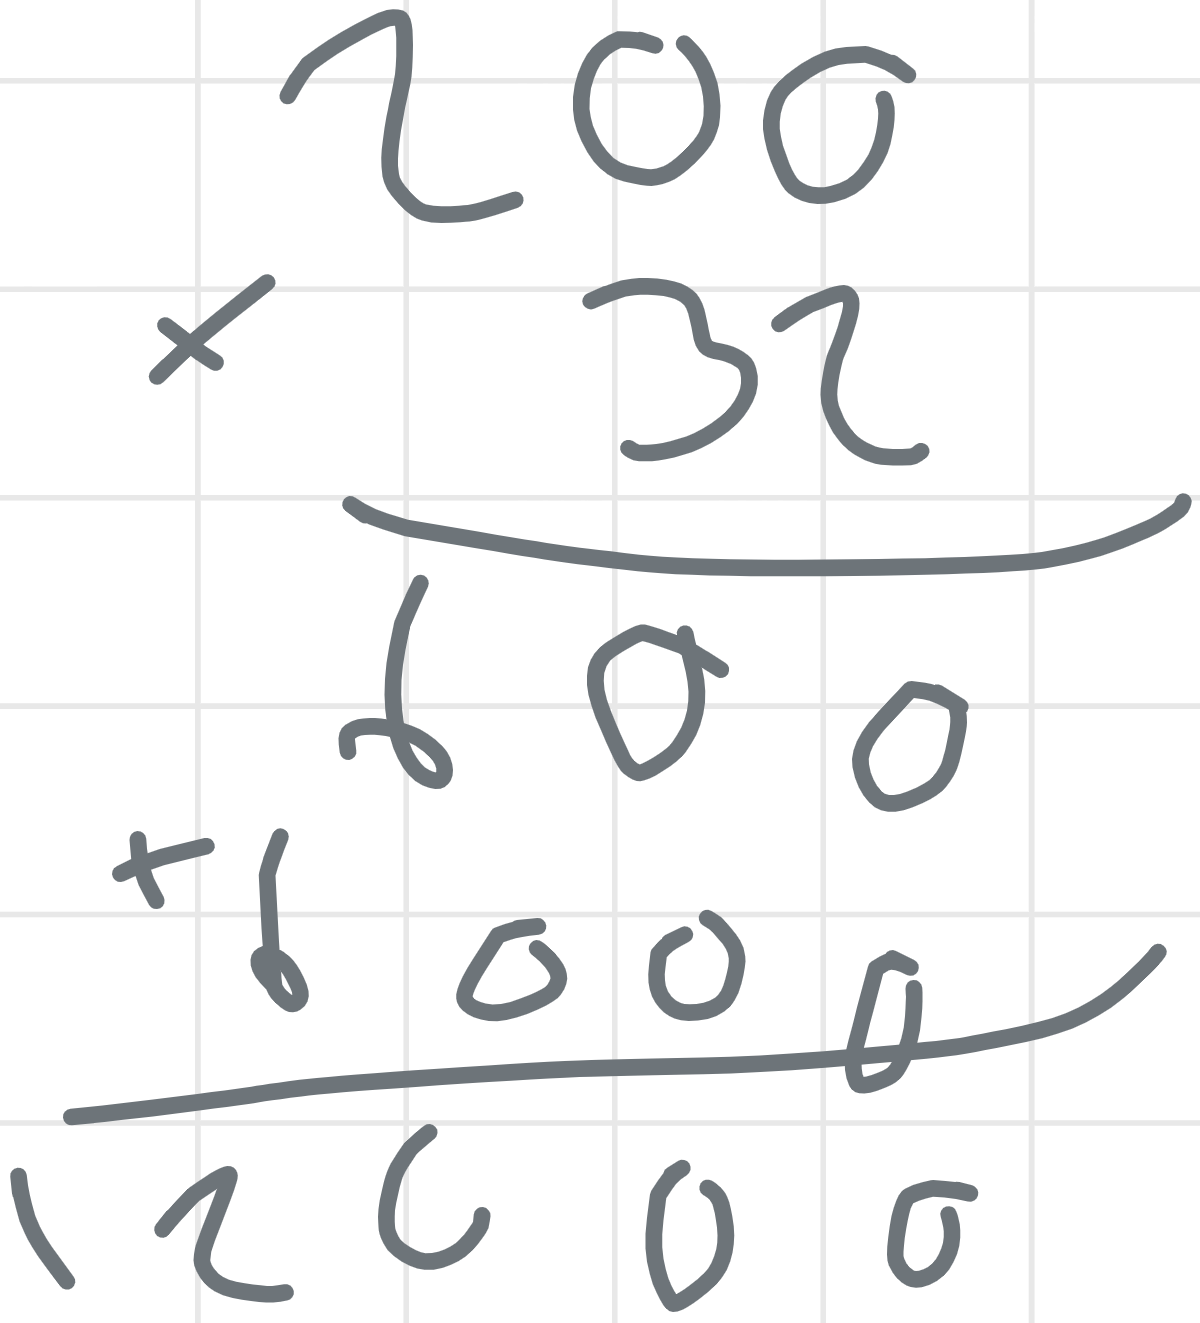 200
× 32
600
+ 6000
12600